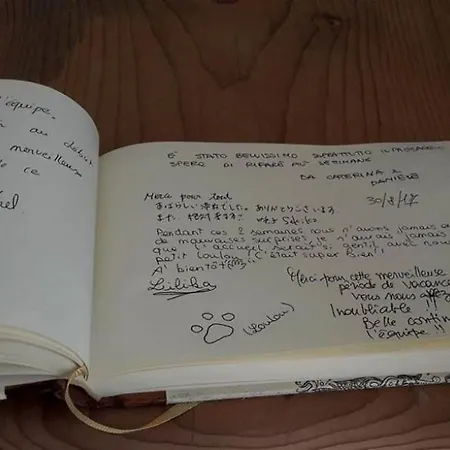 l'équipe.
au début
merveilleuse
de ce
E' STATO BELLISSIMO SOPRATTUTTO IL PAESAGGIO
SPERO DI RIFARE PIÙ SETIMANE
DA CATERINA &
DANIELE
30/8/17
Merci pour tout
すばらしい滞在でした。ありがとうございます。
また、絶対きます。
Pendant ces 2 semaines nous n'avons jamais eu
de mauvaises surprises je n'aurais jamais
que l'accueil serait si gentil avec nous
petit Loulou. C'était super Bien!
A bientôt
Liliha
(Loulou)
Merci pour cette merveilleuse
période de vacances
vous nous
Inoubliable !!
Belle contin
l'équipe !!